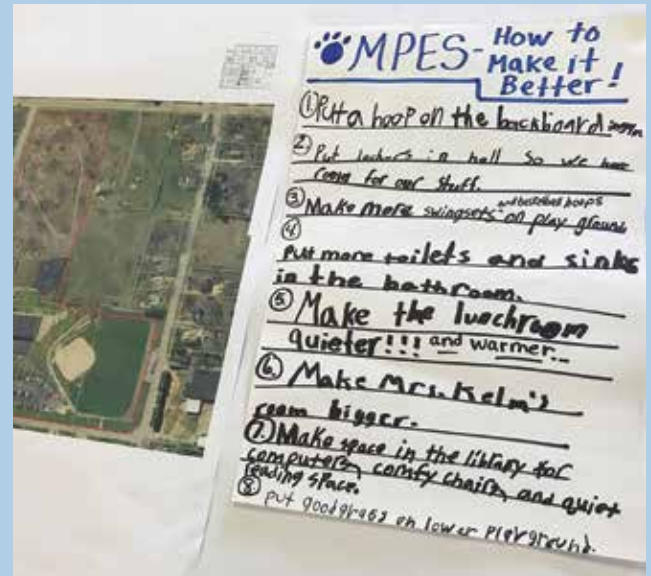 MPES- How to
Make it
Better!
① Put a hoop on the backboard
② Put lockers in hall so we have
room for our stuff.
③ Make more swingsets and basketball hoops on play ground
④
Put more toilets and sinks
in the bathroom.
⑤ Make the lunchroom
quieter!!! and warmer...
⑥ Make Mrs. Kelm's
room bigger.
⑦ Make space in the library for
computers, comfy chairs, and quiet
reading space.
⑧ put good grass on lower playground.